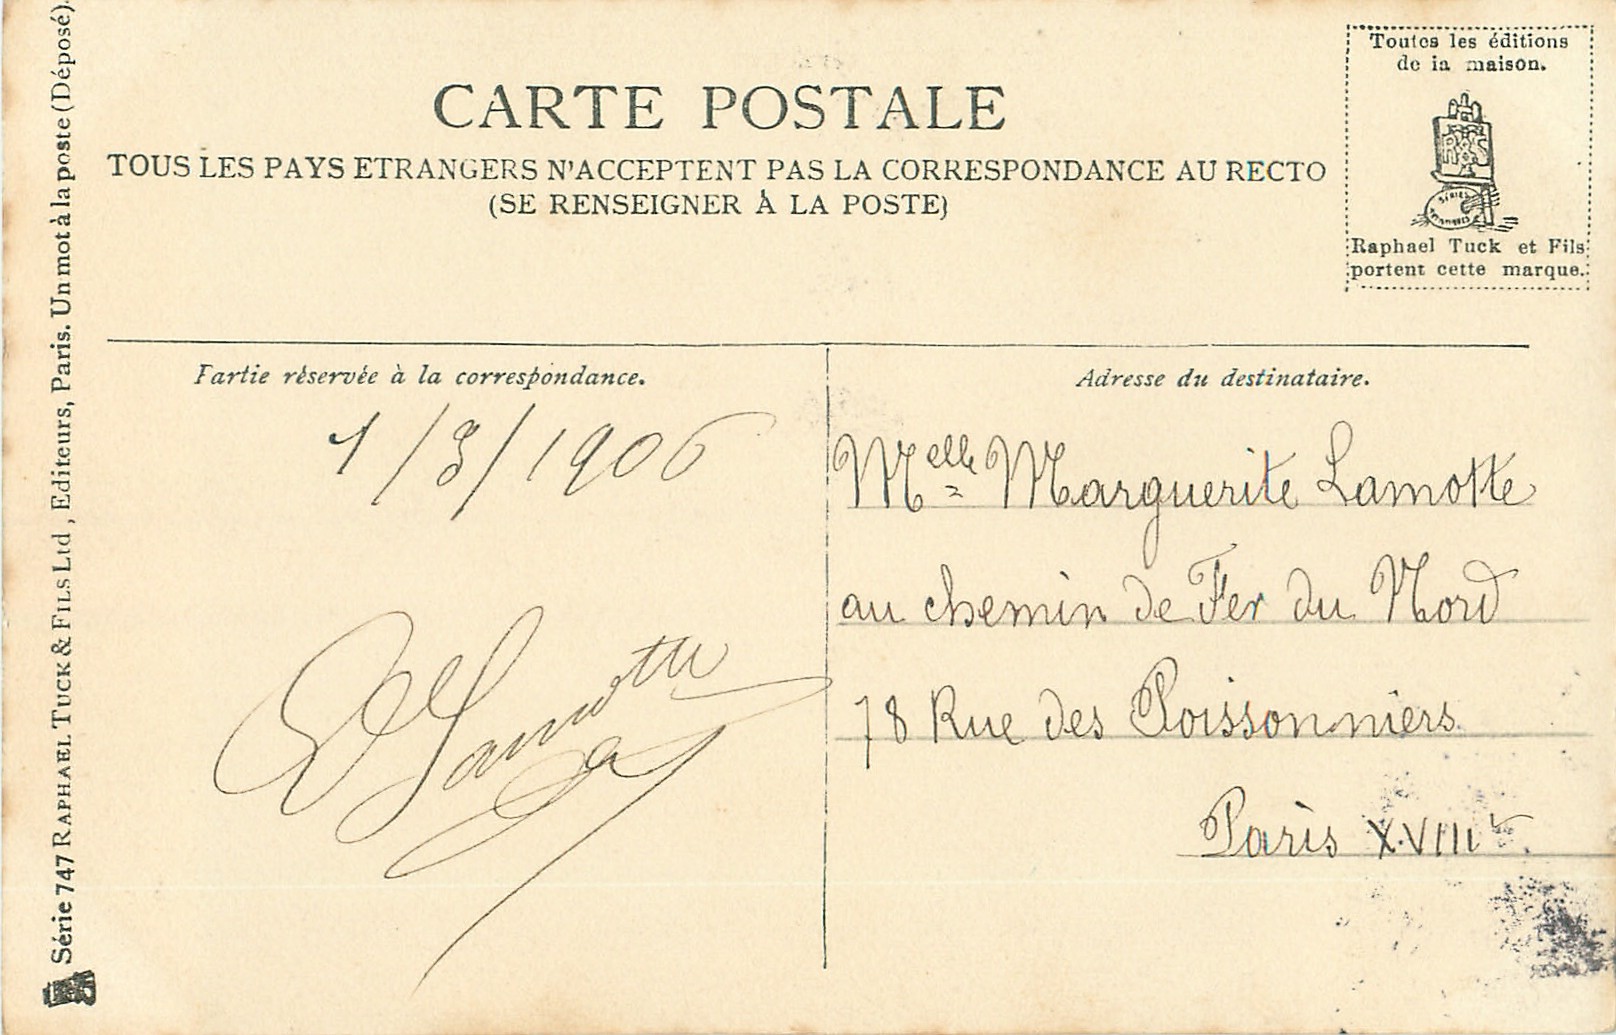 Toutes les éditions
de la maison.
Raphael Tuck et Fils
portent cette marque.
CARTE POSTALE
TOUS LES PAYS ETRANGERS N'ACCEPTENT PAS LA CORRESPONDANCE AU RECTO
(SE RENSEIGNER À LA POSTE)
Série 747 RAPHAEL TUCK & FILS Ltd, Editeurs, Paris. Un mot à la poste (Déposé).
Partie réservée à la correspondance.
1/3/1906
Lamotte
Adresse du destinataire.
Melle Marguerite Lamotte
au chemin de Fer du Nord
78 Rue des Poissonniers
Paris XVIIIe.